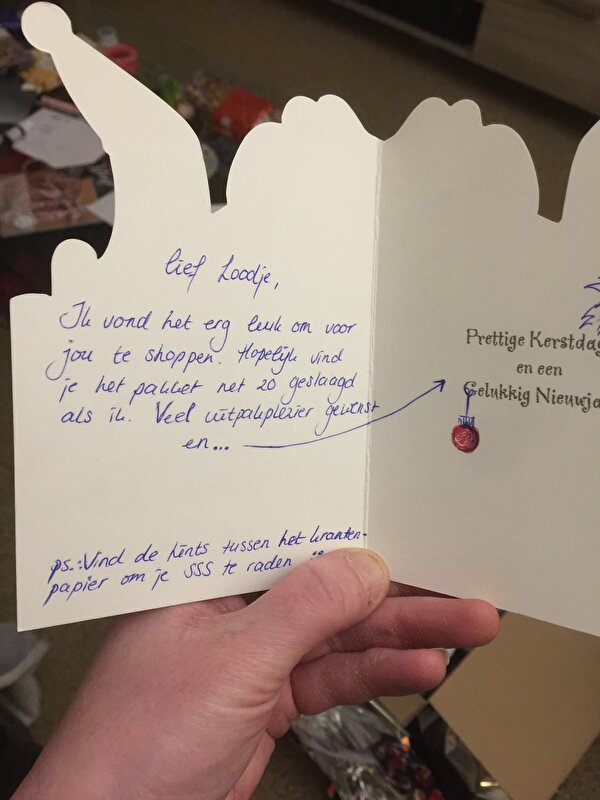 lief Loodje,
Ik vond het erg leuk om voor
jou te shoppen. Hopelijk vind
je het pakket net zo geslaagd
als ik. Veel uitpakplezier gewenst
en...
ps.: Vind de hints tussen het kranten-
papier om je SSS te raden
Prettige Kerstdag
en een
Gelukkig Nieuwja